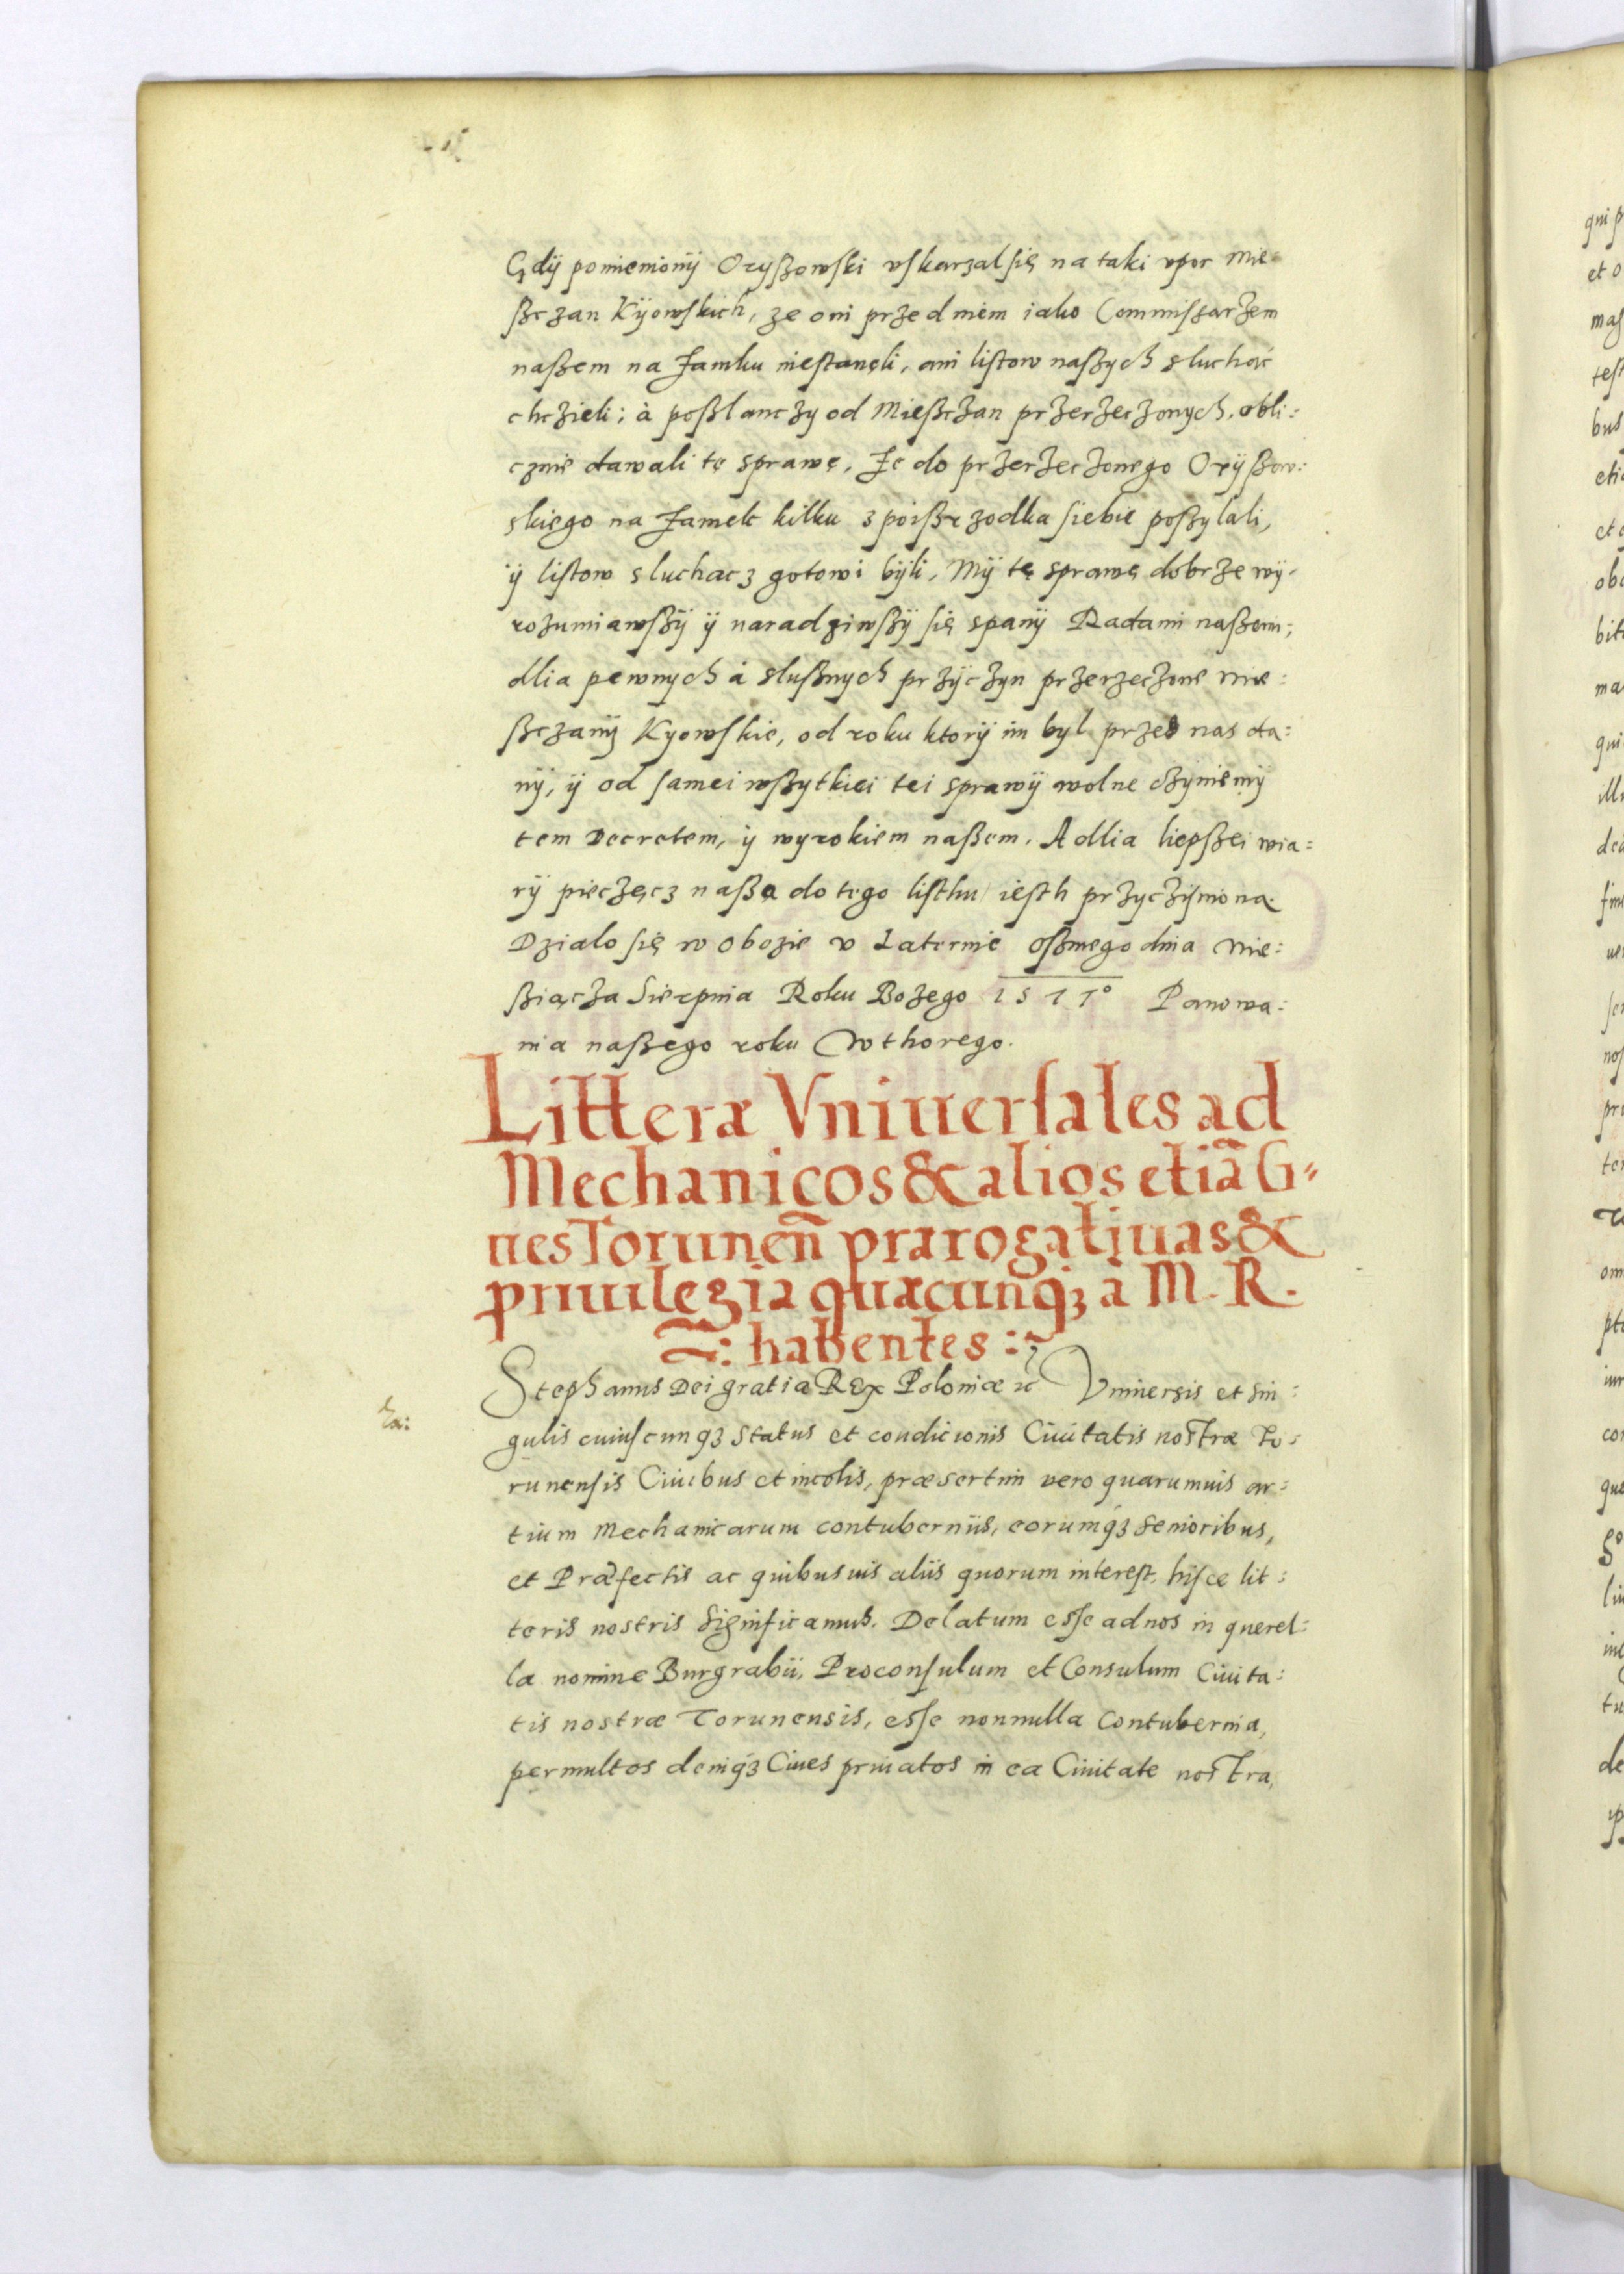 Gdÿ pomienionÿ Oryßowſki vſkarzal ſię na taki vpor mie-
ßczan Kÿowſkich, ze oni przed niem iako Commiſsarzem
naßem na Zamku nieſtanęli, ani liſtow naßych sluchać
chczieli; à poßlanczy od Mießczan przerzeczonych, obli:
cznie dawali tę sprawę, Ze do przerzeczonego Orÿßow:
skiego na Zamek kilku z poißrzodka ſiebie poßylali,
ÿ liſtow sluchacz gotowi bÿli, Mÿ tę sprawę dobrze wÿ-
rozumiawßÿ ÿ naradziwßÿ ſię spanÿ Radami naßemi;
dlia pewnych à slußnych przÿczyn przerzeczone mie:
ßczanÿ Kyowſkie, od roku ktorÿ im byl przes nas da:
nÿ, ÿ od ſamei wßytkiei tei sprawÿ wolne czÿniemÿ
tem Decretem, ÿ wyrokiem naßem. A dlia liepßei wia:
rÿ pieczęcz naßa do tego liſthu ieſth przyczÿniona.
Dzialo ſię w obozie v Laternie oßmego dnia mie:
ßiącza Sierpnia Roku Bozego 1577° Panowa:
nia naßego roku Wthorego.
Litteræ Vniuerſales ad
Mechanicos & alios etiã Ci-
ues Torunen̄ prærogatiuas &
priuilegia quæcunq₃ à M. R.
: habentes :
Stephanus Dei gratia Rex Poloniæ ꝛc Vniuersis et sin:
gulis cuiuſcunq₃ status et condicionis Ciuitatis nostræ To:
runenſis Ciuibus et incolis, præsertim vero quarumuis ar:
tium Mechanicarum contuberniis, eorumq₃ senioribus,
et Præfectis ac quibusuis aliis quorum intereſt, hiſce lit:
teris nostris significamus. Delatum eſse ad nos in querel:
la nomine Burgrabii, Proconſulum et Consulum Ciuita:
tis nostræ Torunensis, eſse nonnulla Contubernia,
permultos deniq₃ Ciues priuatos in ea Ciuitate nostra,